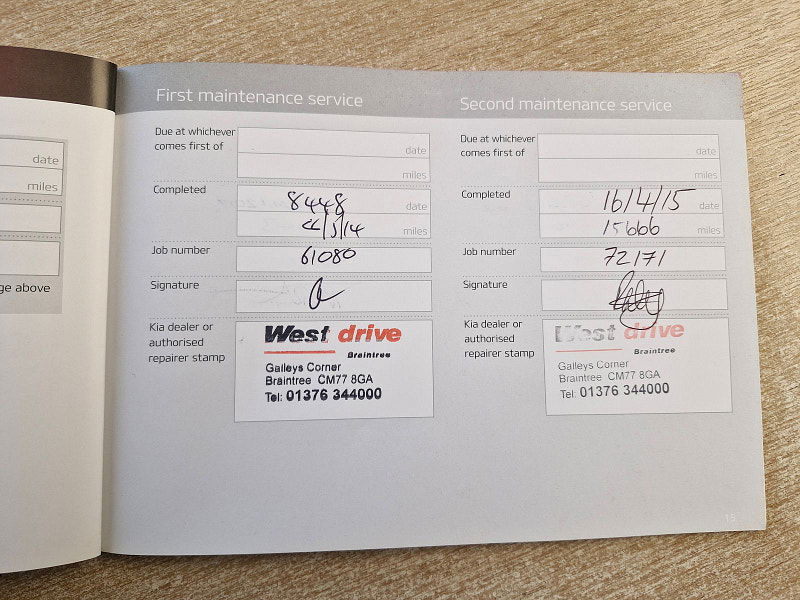 date
miles
ge above
First maintenance service
Due at whichever
comes first of
date
miles
Completed
8448
date
/5/14
miles
Job number
61080
Signature
Kia dealer or
authorised
repairer stamp
West drive
Braintree
Galleys Corner
Braintree CM77 8GA
Tel: 01376 344000
Second maintenance service
Due at whichever
comes first of
date
miles
Completed
16/4/15
date
15666
miles
Job number
72171
Signature
Kia dealer or
authorised
repairer stamp
West drive
Braintree
Galleys Corner
Braintree CM77 8GA
Tel: 01376 344000
15